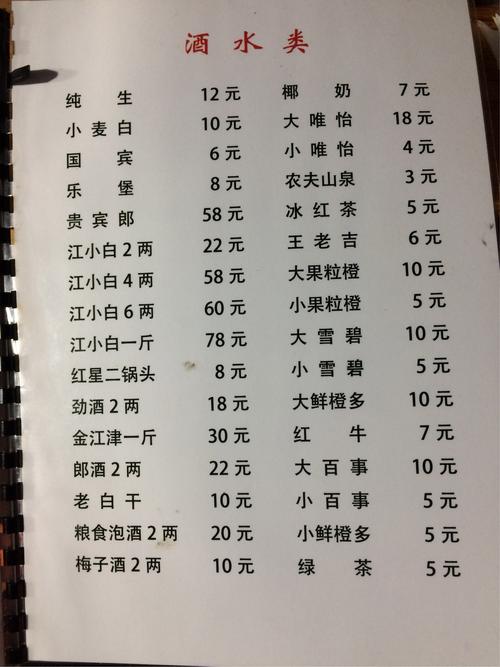 酒水类
纯生 12元 椰奶 7元
小麦白 10元 大唯怡 18元
国宾 6元 小唯怡 4元
乐堡 8元 农夫山泉 3元
贵宾郎 58元 冰红茶 5元
江小白2两 22元 王老吉 6元
江小白4两 58元 大果粒橙 10元
江小白6两 60元 小果粒橙 5元
江小白一斤 78元 大雪碧 10元
红星二锅头 8元 小雪碧 5元
劲酒2两 18元 大鲜橙多 10元
金江津一斤 30元 红牛 7元
郎酒2两 22元 大百事 10元
老白干 10元 小百事 5元
粮食泡酒2两 20元 小鲜橙多 5元
梅子酒2两 10元 绿茶 5元